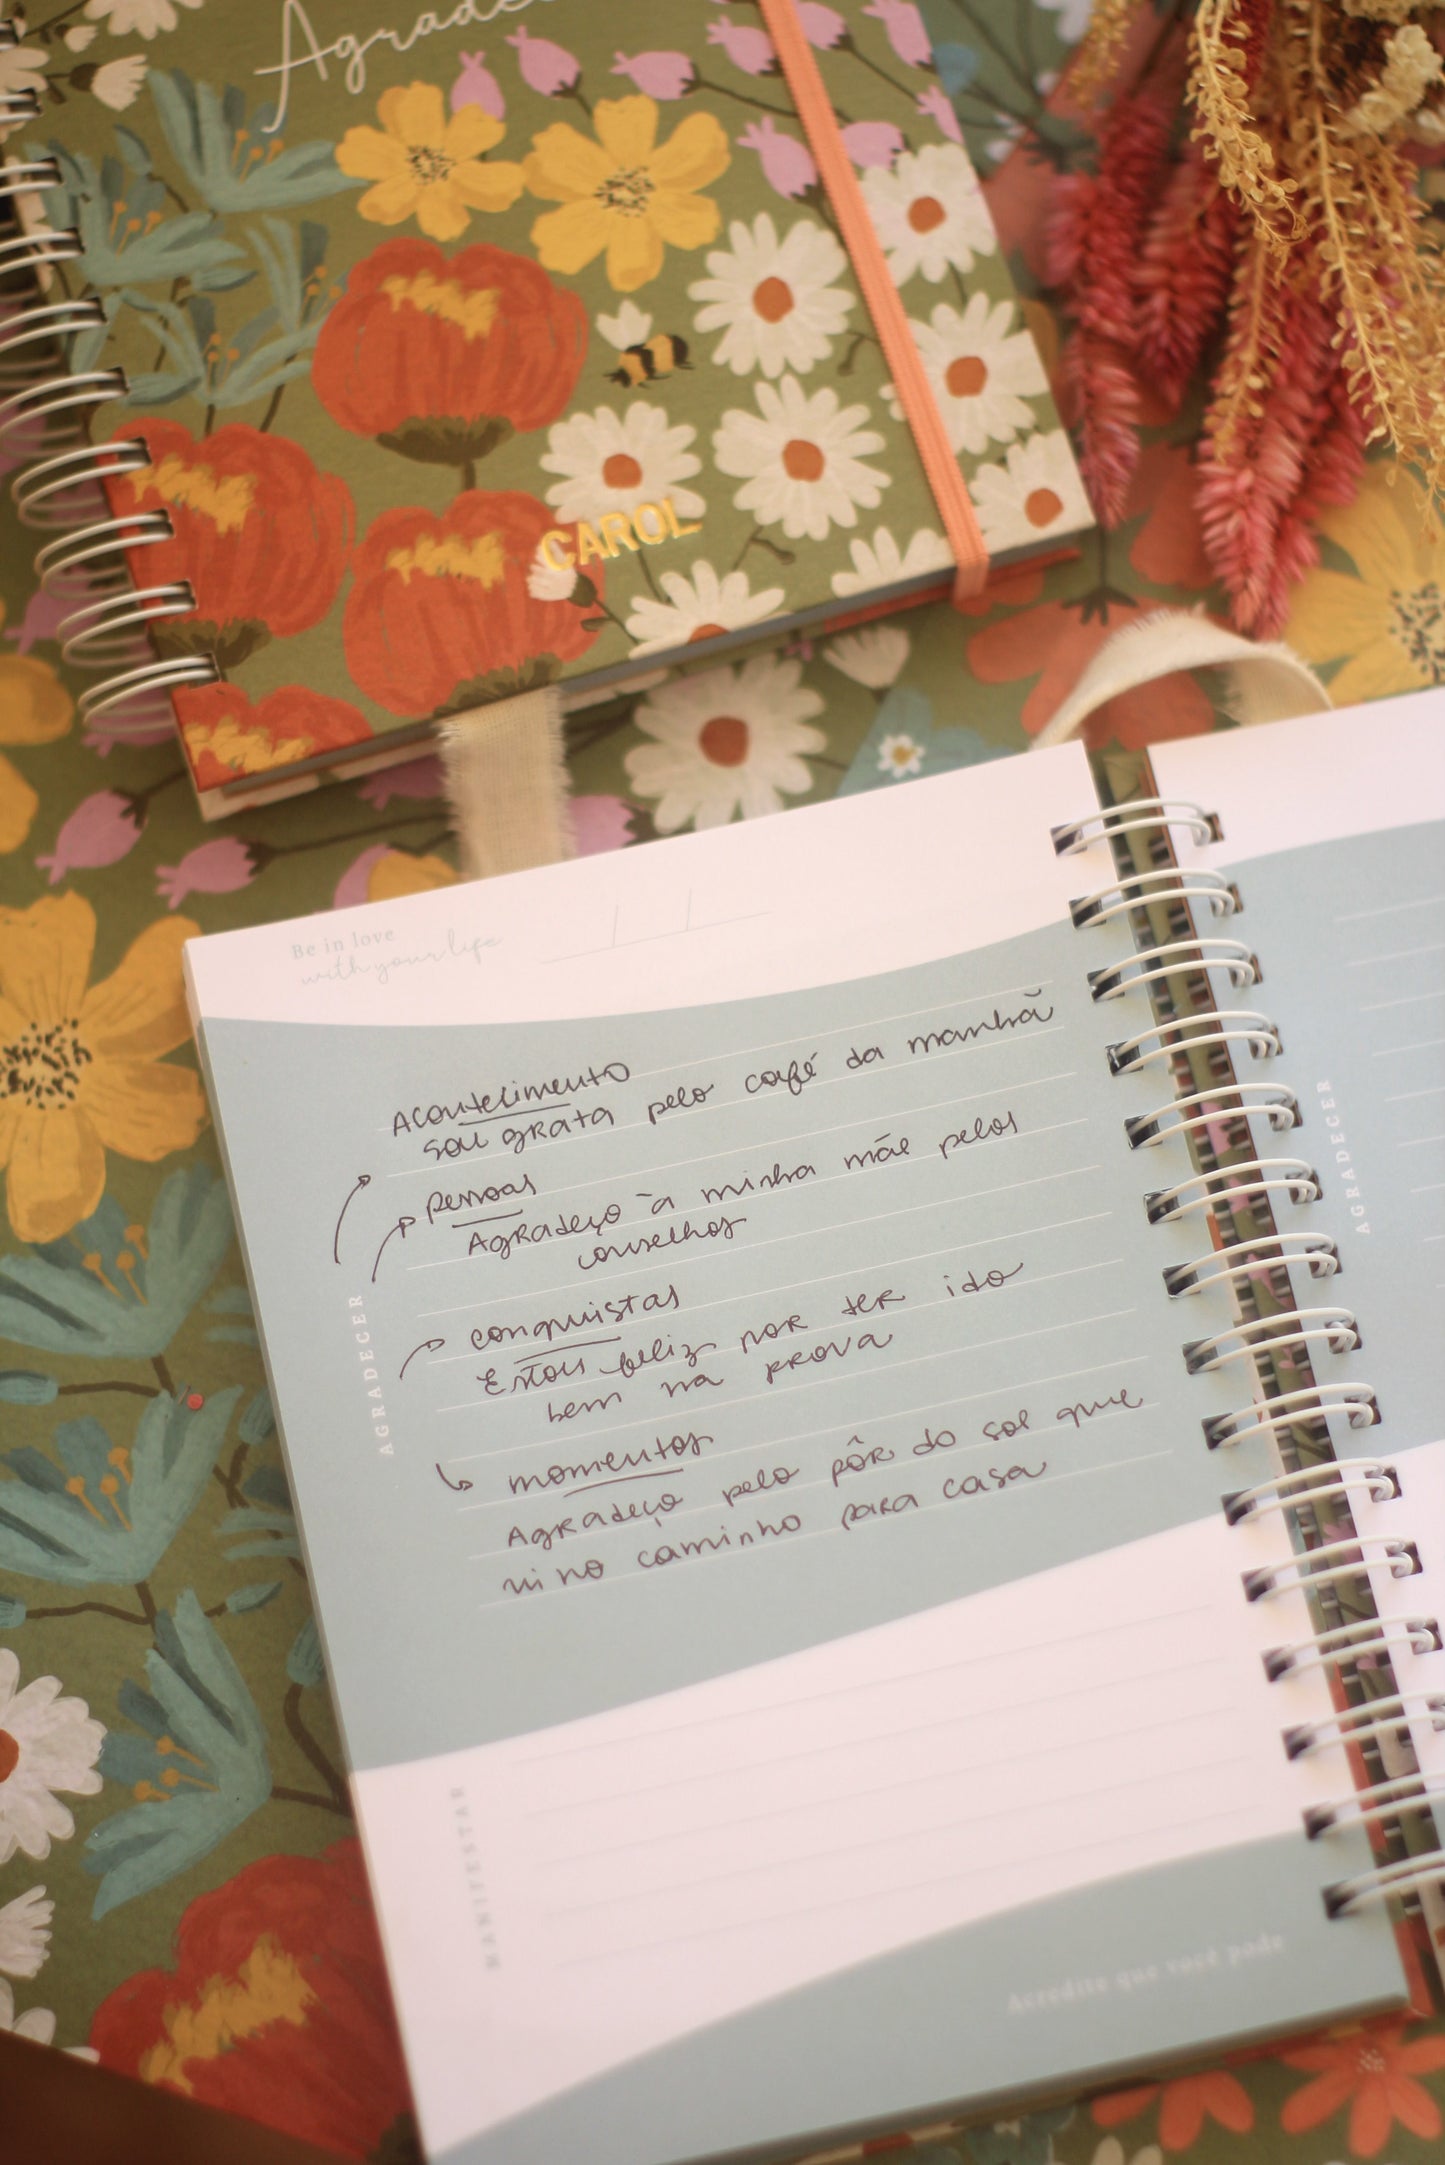 CAROL
Be in love
with your life
Acontecimento
sou grata pelo café da manhã
pessoas
Agradeço à minha mãe pelos
conselhos
conquistas
Estou feliz por ter ido
bem na prova
momentos
Agradeço pelo pôr do sol que
vi no caminho para casa
AGRADECER
MANIFESTAR
Acredite que você pode
AGRADECER